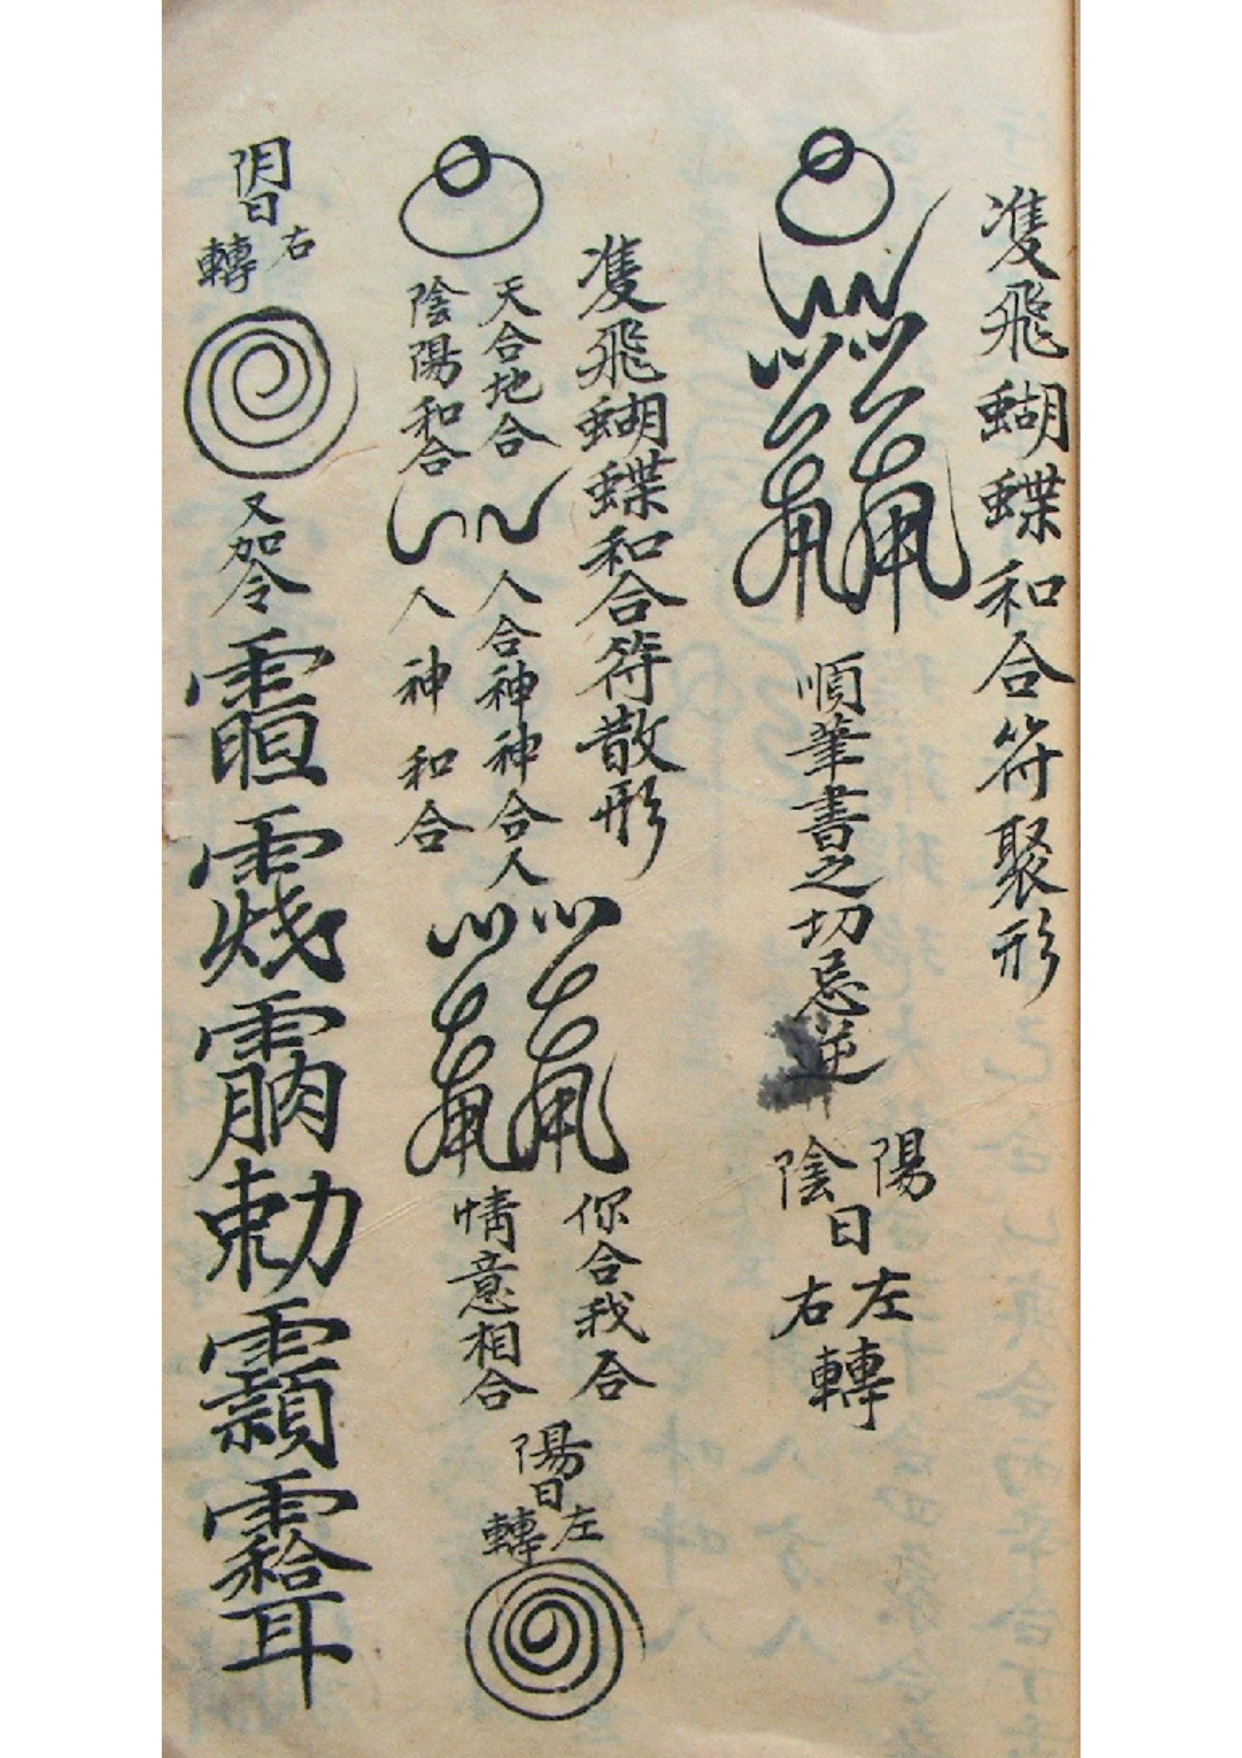 隻飛蝴蝶和合符聚形
順筆書之切忌逆
陽
陰
日
左
右
轉
隻飛蝴蝶和合符散形
天合地合
陰陽和合
人合神神合人
人神和合
你合我合
情意相合
陽日左轉
阴日右轉
又加令
勅